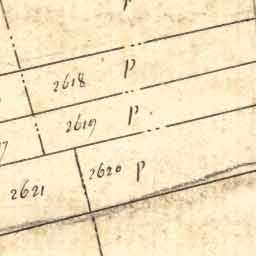 2618 p
2619 p
2620 p
2621